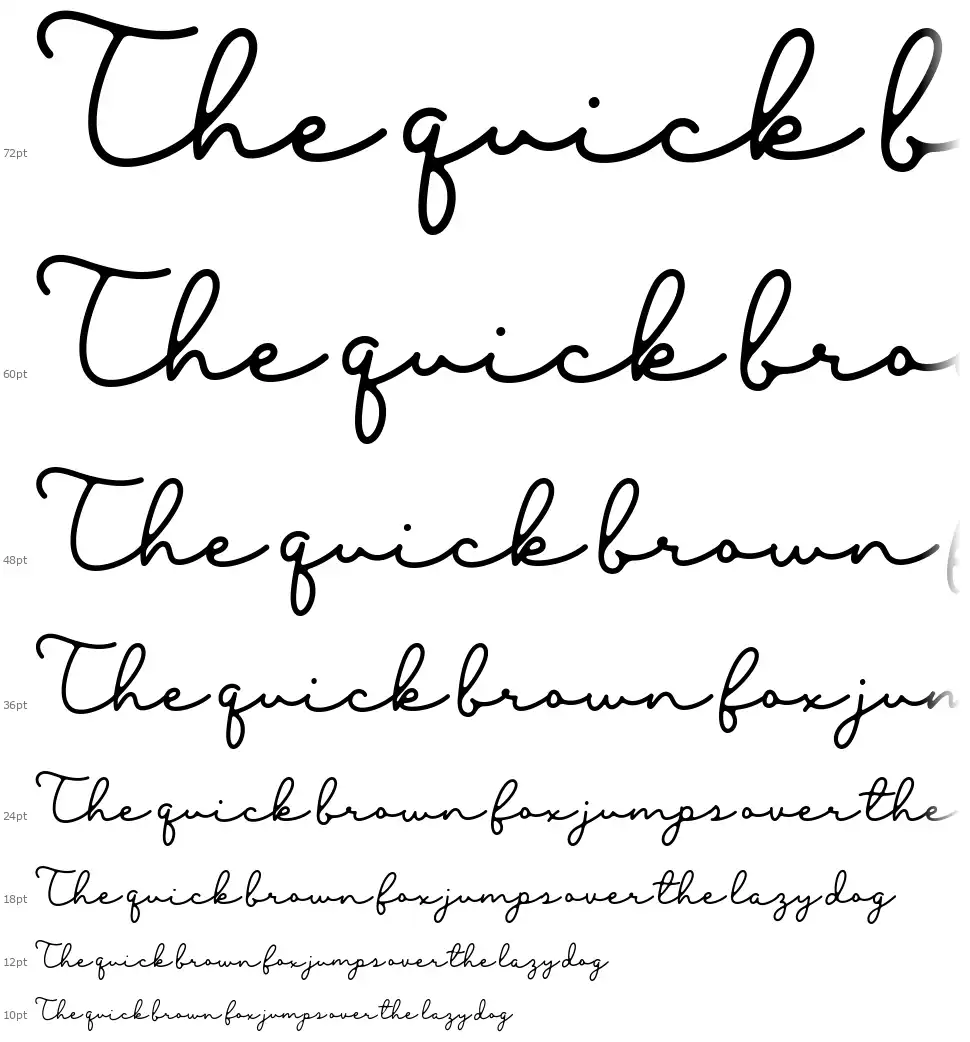 72pt The quick b
60pt The quick bro
48pt The quick brown
36pt The quick brown fox jun
24pt The quick brown fox jumps over the
18pt The quick brown fox jumps over the lazy dog
12pt The quick brown fox jumps over the lazy dog
10pt The quick brown fox jumps over the lazy dog